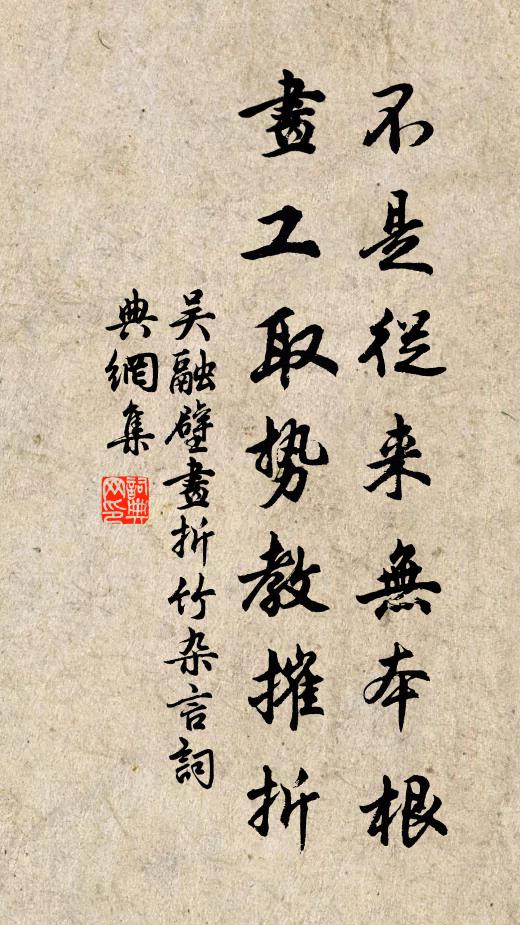 不是從来無本根
畫工取势教摧折
吴融壁畫折竹杂言詞
典網集
詞典
网印